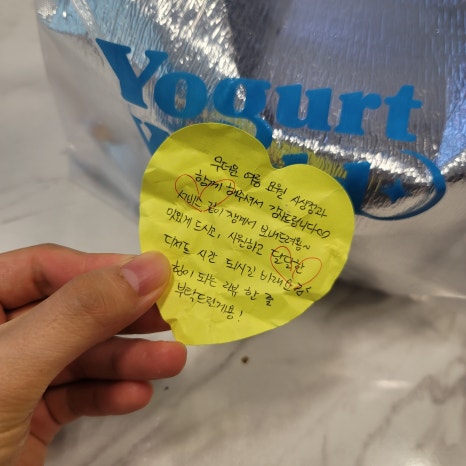 Yogurt
무더운 여름 요월 삼성점과
함께 해주셔서 감사드립니다♡
서비스 같이 챙겨서 보내드려용~
맛있게 드시고, 시원하고 달달한
디저트 시간 되시길 바래요용~
힘이 되는 리뷰 한 줄
부탁드린게용!